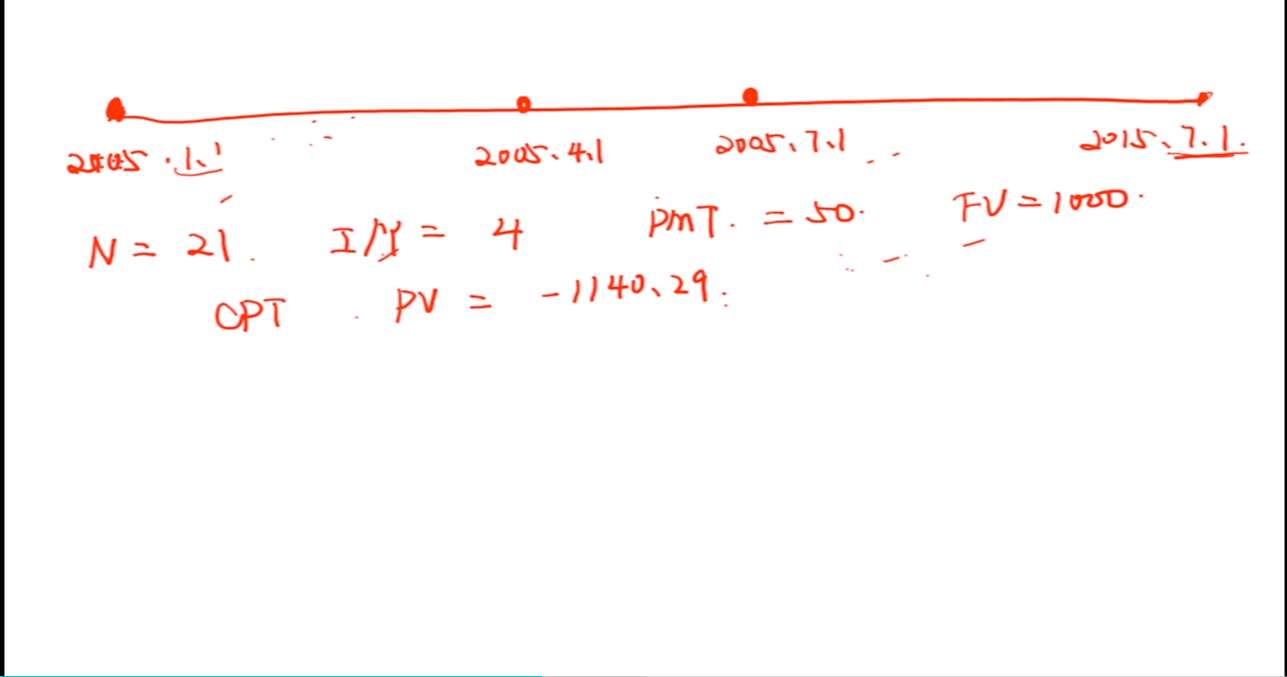 2005.1.1 2005.4.1 2005.7.1 2015.7.1.
N = 21. I/Y = 4 PMT. = 50. FV = 1000.
CPT PV = -1140.29.